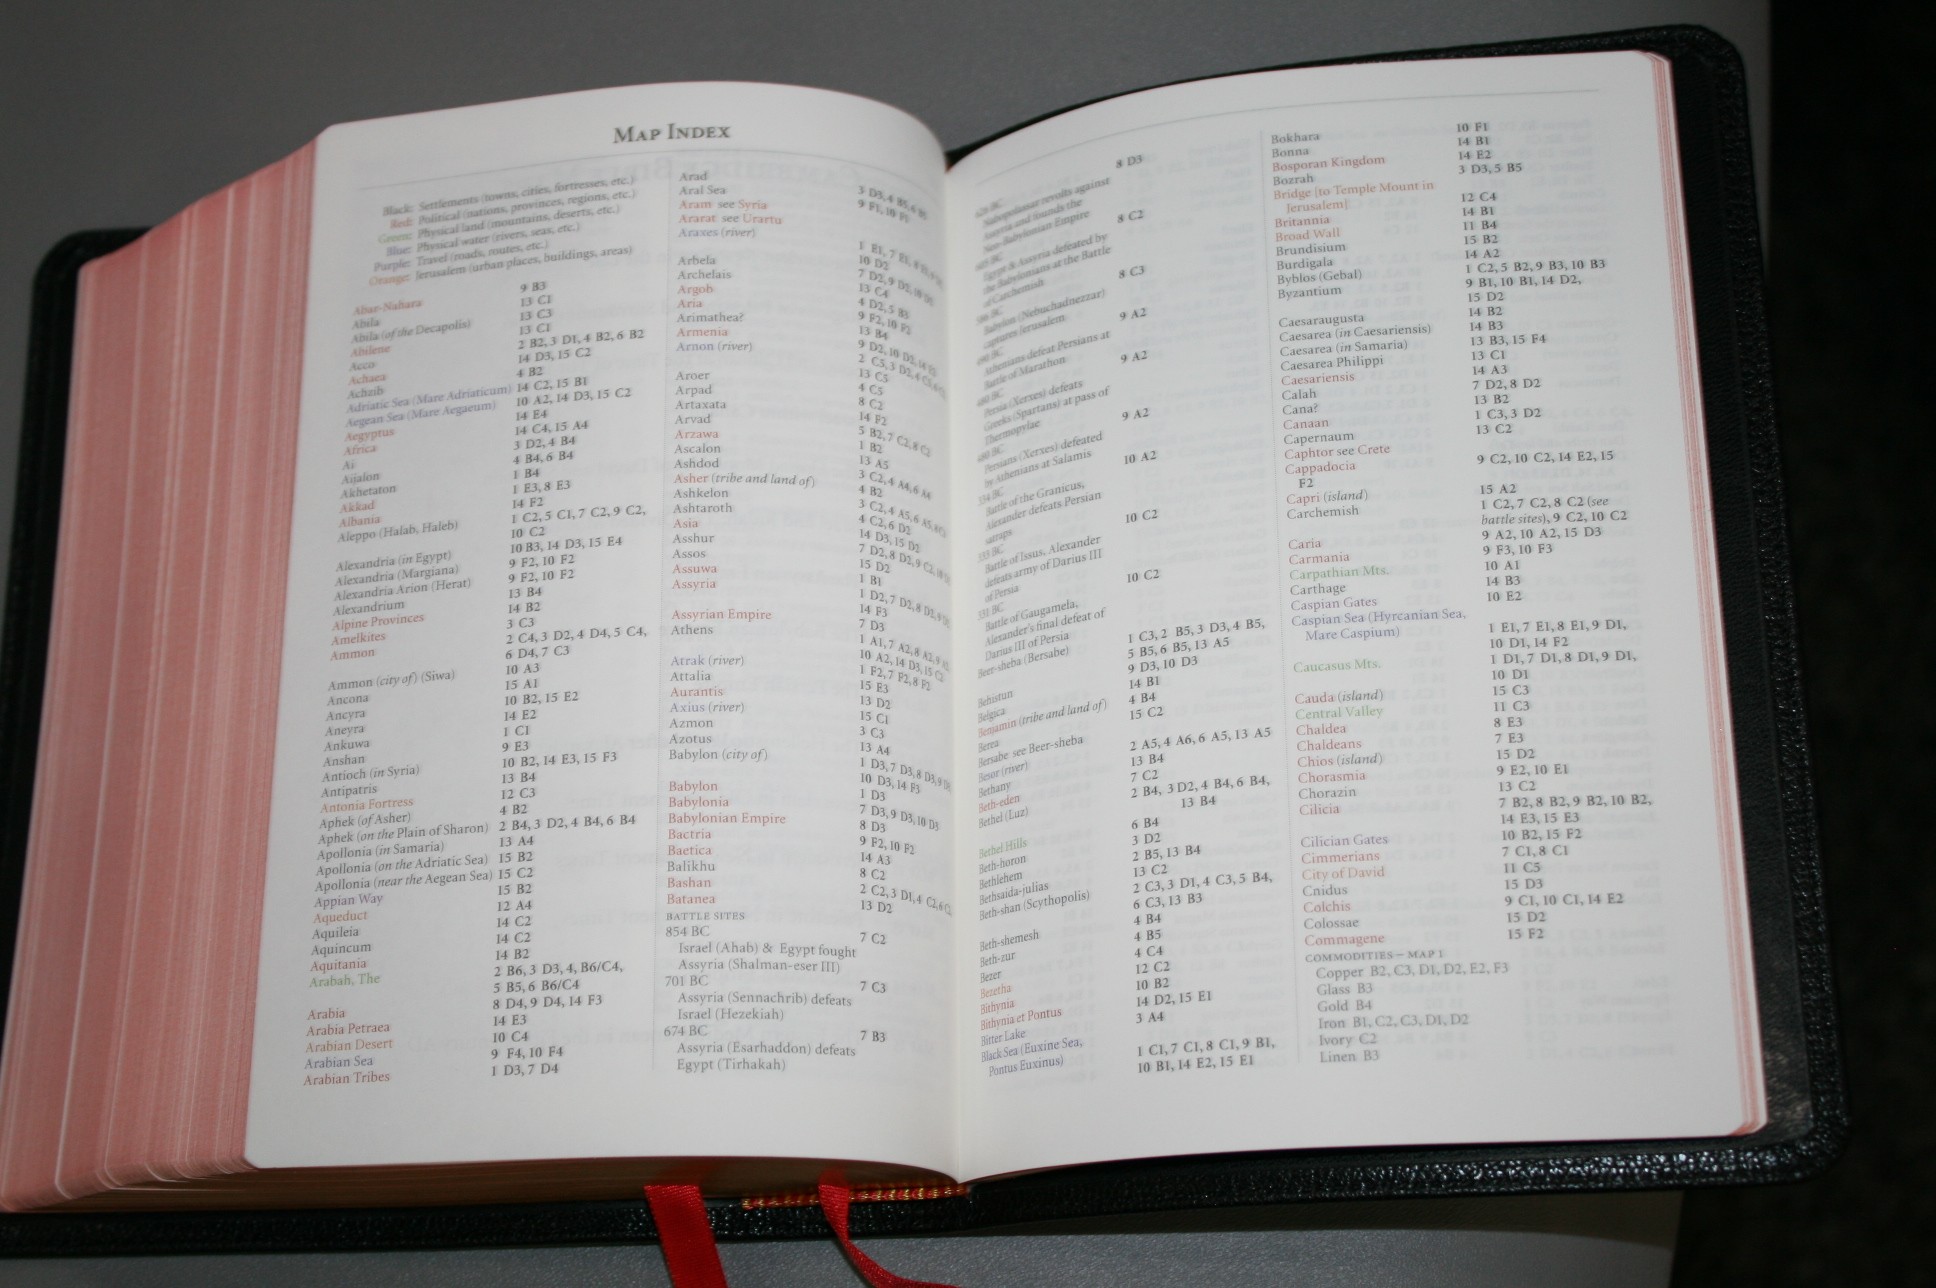 MAP INDEX
Black: Settlements (towns, cities, fortresses, etc.)
Red: Political (nations, provinces, regions, etc.)
Green: Physical land (mountains, deserts, etc.)
Blue: Physical water (rivers, seas, etc.)
Purple: Travel (roads, routes, etc.)
Orange: Jerusalem (urban places, buildings, areas)
Abar-Nahara 9 B3
Abila 13 C1
Abila (of the Decapolis) 13 C3
Abilene 13 C1
Acco 2 B2, 3 D1, 4 B2, 6 B2
Achaea 14 D3, 15 C2
Achzib 4 B2
Adriatic Sea (Mare Adriaticum) 14 C2, 15 B1
Aegean Sea (Mare Aegaeum) 10 A2, 14 D3, 15 C2
Aegyptus 14 E4
Africa 14 C4, 15 A4
Ai 3 D2, 4 B4
Aijalon 4 B4, 6 B4
Akhetaton 1 B4
Akkad 1 E3, 8 E3
Albania 14 F2
Aleppo (Halab, Haleb) 1 C2, 5 C1, 7 C2, 9 C2,
10 C2
Alexandria (in Egypt) 10 B3, 14 D3, 15 E4
Alexandria (Margiana) 9 F2, 10 F2
Alexandria Arion (Herat) 9 F2, 10 F2
Alexandrium 13 B4
Alpine Provinces 14 B2
Amelkites 3 C3
Ammon 2 C4, 3 D2, 4 D4, 5 C4,
6 D4, 7 C3
Ammon (city of) (Siwa) 10 A3
Ancona 15 A1
Ancyra 10 B2, 15 E2
Aneyra 14 E2
Ankuwa 1 C1
Anshan 9 E3
Antioch (in Syria) 10 B2, 14 E3, 15 F3
Antipatris 13 B4
Antonia Fortress 12 C3
Aphek (of Asher) 4 B2
Aphek (on the Plain of Sharon) 2 B4, 3 D2, 4 B4, 6 B4
Apollonia (in Samaria) 13 A4
Apollonia (on the Adriatic Sea) 15 B2
Apollonia (near the Aegean Sea) 15 C2
Appian Way 15 B2
Aqueduct 12 A4
Aquileia 14 C2
Aquincum 14 C2
Aquitania 14 B2
Arabah, The 2 B6, 3 D3, 4, B6/C4,
5 B5, 6 B6/C4
Arabia 8 D4, 9 D4, 14 F3
Arabia Petraea 14 E3
Arabian Desert 10 C4
Arabian Sea 9 F4, 10 F4
Arabian Tribes 1 D3, 7 D4
Arad 3 D3, 4 B5, 6 B5
Aral Sea 9 F1, 10 F1
Aram see Syria
Ararat see Urartu
Araxes (river) 1 E1, 7 E1,
10 D2
Arbela 7 D2, 9 D2, 10 D2
Archelais 13 C4
Argob 4 D2, 5 B3
Aria 9 F2, 10 F2
Arimathea? 13 B4
Armenia 9 D2, 10 D2,
Arnon (river) 2 C5, 3 D2,
13 C5
Aroer 4 C5
Arpad 8 C2
Artaxata 14 F2
Arvad 5 B2, 7 C2, 8 C2
Arzawa 1 B2
Ascalon 13 A5
Ashdod 3 C2, 4 A4, 6 A4
Asher (tribe and land of) 4 B2
Ashkelon 3 C2, 4 A5, 6 A5,
Ashtaroth 4 C2, 6 D2
Asia 14 D3, 15 D2
Asshur 7 D2, 8 D2, 9 C2,
Assos 15 D2
Assuwa 1 B1
Assyria 1 D2, 7 D2, 8 D2,
14 F3
Assyrian Empire 7 D3
Athens 1 A1, 7 A2, 8 A2,
10 A2, 14 D3, 15 C2
Atrak (river) 1 F2, 7 F2, 8 F2
Attalia 15 E3
Aurantis 13 D2
Axius (river) 15 C1
Azmon 3 C3
Azotus 13 A4
Babylon (city of) 1 D3, 7 D3, 8 D3,
10 D3, 14 F3
Babylon 1 D3
Babylonia 7 D3, 9 D3, 10 D3
Babylonian Empire 8 D3
Bactria 9 F2, 10 F2
Baetica 14 A3
Balikhu 8 C2
Bashan 2 C2, 3 D1, 4 C2, 6 C2
Batanea 13 D2
BATTLE SITES
854 BC 7 C2
Israel (Ahab) & Egypt fought
Assyria (Shalman-eser III)
701 BC 7 C3
Assyria (Sennachrib) defeats
Israel (Hezekiah)
674 BC 7 B3
Assyria (Esarhaddon) defeats
Egypt (Tirhakah)
BC 8 D3
Nabopolassar revolts against
Assyria and founds the
Neo-Babylonian Empire
BC 8 C2
Egypt & Assyria defeated by
the Babylonians at the Battle
of Carchemish
BC 8 C3
Babylon (Nebuchadnezzar)
captures Jerusalem
BC 9 A2
Athenians defeat Persians at
Battle of Marathon
BC 9 A2
Persia (Xerxes) defeats
Greeks (Spartans) at pass of
Thermopylae
480 BC 9 A2
Persians (Xerxes) defeated
by Athenians at Salamis
334 BC 10 A2
Battle of the Granicus,
Alexander defeats Persian
satraps
333 BC 10 C2
Battle of Issus, Alexander
defeats army of Darius III
of Persia
331 BC 10 C2
Battle of Gaugamela,
Alexander's final defeat of
Darius III of Persia
Beer-sheba (Bersabe) 1 C3, 2 B5, 3 D3, 4 B5,
5 B5, 6 B5, 13 A5
Behistun 9 D3, 10 D3
Belgica 14 B1
Benjamin (tribe and land of) 4 B4
Berea 15 C2
Bersabe see Beer-sheba
Besor (river) 2 A5, 4 A6, 6 A5, 13 A5
Bethany 13 B4
Beth-eden 7 C2
Bethel (Luz) 2 B4, 3 D2, 4 B4, 6 B4,
13 B4
Bethel Hills 6 B4
Beth-horon 3 D2
Bethlehem 2 B5, 13 B4
Bethsaida-julias 13 C2
Beth-shan (Scythopolis) 2 C3, 3 D1, 4 C3, 5 B4,
6 C3, 13 B3
Beth-shemesh 4 B4
Beth-zur 4 B5
Bezer 4 C4
Bezetha 12 C2
Bithynia 10 B2
Bithynia et Pontus 14 D2, 15 E1
Bitter Lake 3 A4
Black Sea (Euxine Sea, 1 C1, 7 C1, 8 C1, 9 B1,
Pontus Euxinus) 10 B1, 14 E2, 15 E1
Bokhara 10 F1
Bonna 14 B1
Bosporan Kingdom 14 E2
Bozrah 3 D3, 5 B5
Bridge [to Temple Mount in
Jerusalem] 12 C4
Britannia 14 B1
Broad Wall 11 B4
Brundisium 15 B2
Burdigala 14 A2
Byblos (Gebal) 1 C2, 5 B2, 9 B3, 10 B3
Byzantium 9 B1, 10 B1, 14 D2,
15 D2
Caesaraugusta 14 B2
Caesarea (in Caesariensis) 14 B3
Caesarea (in Samaria) 13 B3, 15 F4
Caesarea Philippi 13 C1
Caesariensis 14 A3
Calah 7 D2, 8 D2
Cana? 13 B2
Canaan 1 C3, 3 D2
Capernaum 13 C2
Caphtor see Crete
Cappadocia 9 C2, 10 C2, 14 E2, 15
F2
Capri (island) 15 A2
Carchemish 1 C2, 7 C2, 8 C2 (see
battle sites), 9 C2, 10 C2
Caria 9 A2, 10 A2, 15 D3
Carmania 9 F3, 10 F3
Carpathian Mts. 10 A1
Carthage 14 B3
Caspian Gates 10 E2
Caspian Sea (Hyrcanian Sea,
Mare Caspium) 1 E1, 7 E1, 8 E1, 9 D1,
10 D1, 14 F2
Caucasus Mts. 1 D1, 7 D1, 8 D1, 9 D1,
10 D1
Cauda (island) 15 C3
Central Valley 11 C3
Chaldea 8 E3
Chaldeans 7 E3
Chios (island) 15 D2
Chorasmia 9 E2, 10 E1
Chorazin 13 C2
Cilicia 7 B2, 8 B2, 9 B2, 10 B2,
14 E3, 15 E3
Cilician Gates 10 B2, 15 F2
Cimmerians 7 C1, 8 C1
City of David 11 C5
Cnidus 15 D3
Colchis 9 C1, 10 C1, 14 E2
Colossae 15 D2
Commagene 15 F2
COMMODITIES – MAP 1
Copper B2, C3, D1, D2, E2, F3
Glass B3
Gold B4
Iron B1, C2, C3, D1, D2
Ivory C2
Linen B3